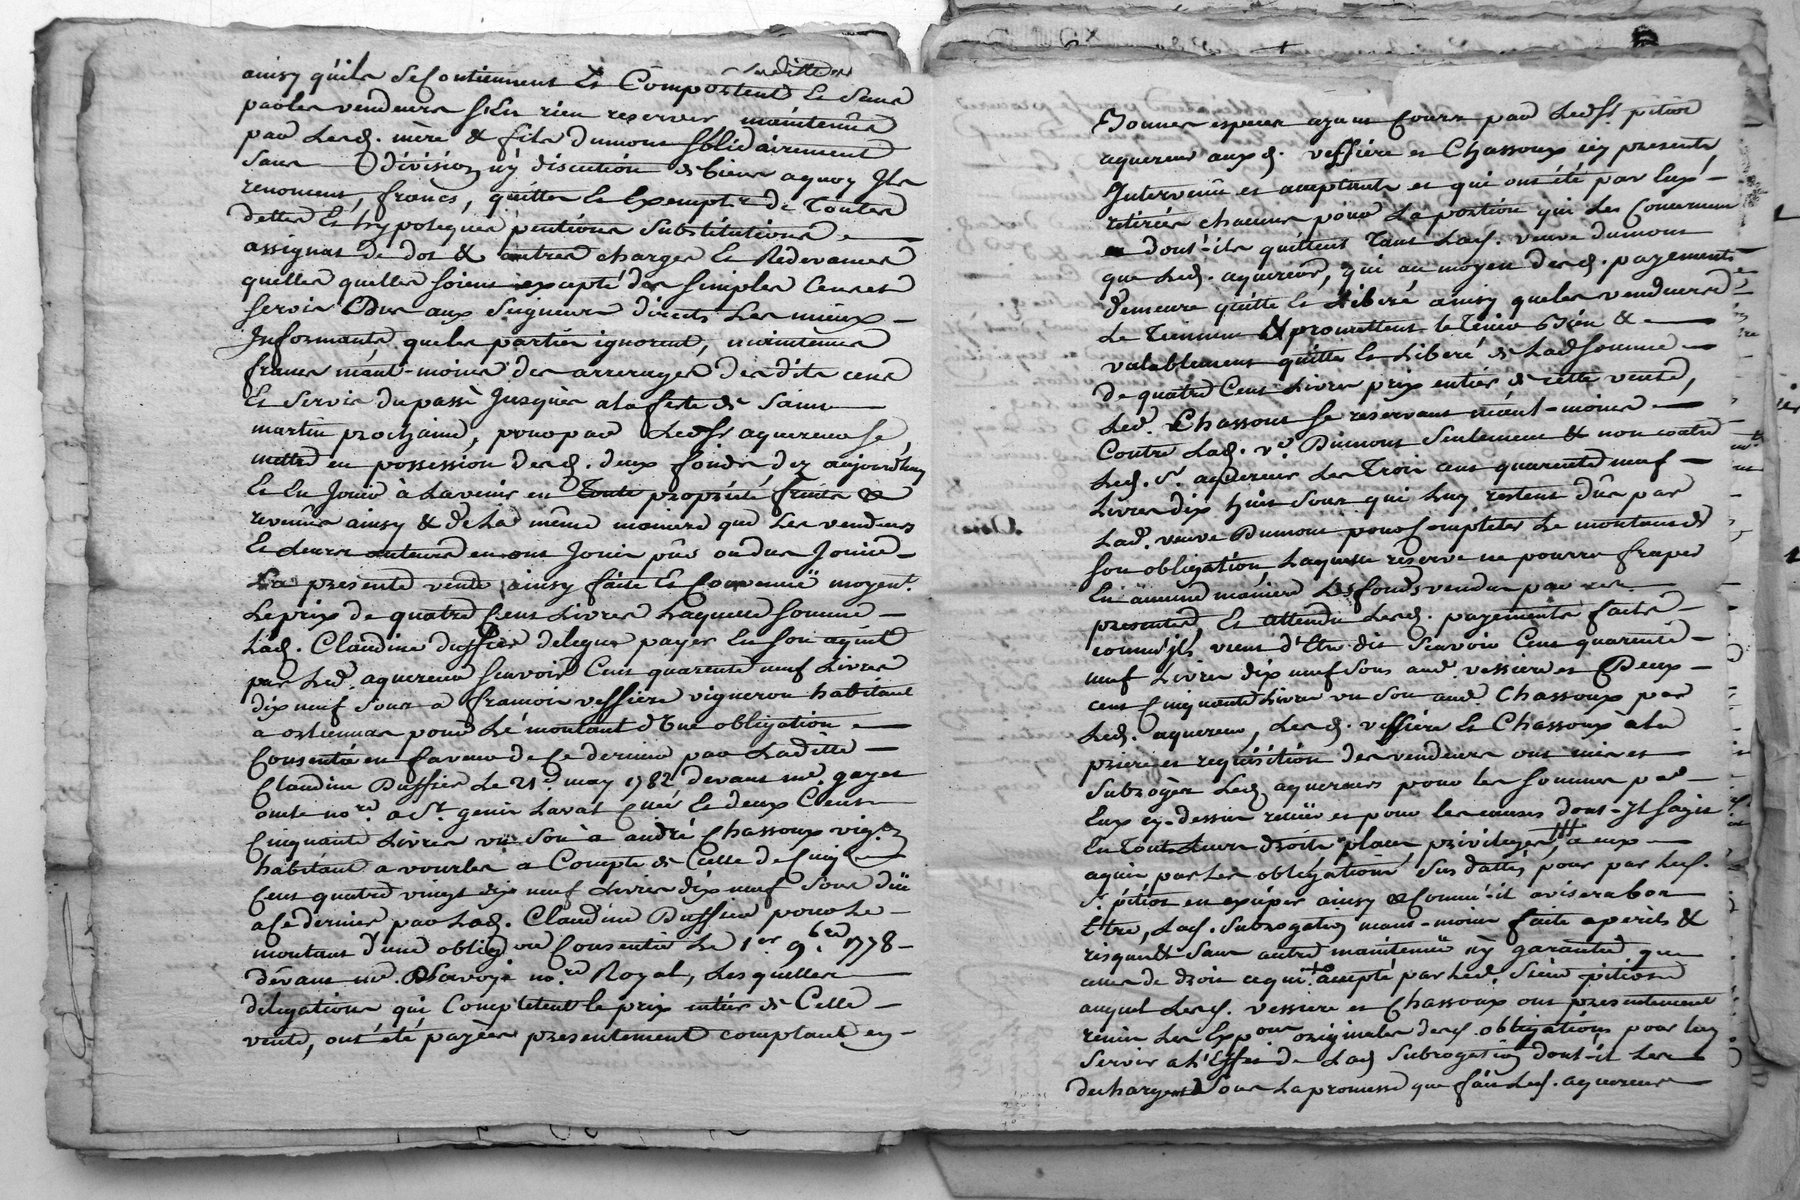 ainsy qu'ils se contiennent et Comportent Et Sans
par les vendeurs S'En rien reserver maintenûs
par Lesd. mère & fils dumont solidairement
Sans division ny discution de biens aquoy Ils
renoncent, francs, quittes Et Exempts de Toutes
dettes Et hypoteques pentions Substitutions
assignat de dot & autres charges Et Redevances
quelles quelles soient excepté des simples Censes
servis Dus aux Seigneurs directs Les mieux
Informants que les parties ignorent, maintenus
francs néant-moins des arrerages des dits cens
Et Servis du passé Jusques a la feste de Saint
martin prochaine, pour par Led Sr aquereur se
mettre en possession desd. deux fonds dez aujourd'huy
Et En Jouir à Lavenir en Toute propriété fruits &
revenûs ainsy & de La même maniere que Les vendeurs
Et Leurs auteurs en ont Joui pû ou dus Jouir
La presente vente ainsy faite Et Convenuë moyent.
Le prix de quatre Cent Livres Laquelle somme
Lad. Claudine Duffier delegue payer En son aquit
par Led. aquereur sçavoir Cent quarente neuf Livres
dix neuf sous a francois vessiere vigneron habitant
a pour Le montant d'Une obligation
Consentie en faveur de Ce dernier par Laditte
Claudine Duffier Le 21e may 1782 devant me. gayet
no.re a St. genis Laval Et deux Cent
Cinquante Livres un Sou à andré Chassoux vig.on
habitant a vourles a Compte de Celle de Cinq
Cent quatre vingt dix neuf Livres dix neuf Sous dûë
a Ce dernier par Lad. Claudine Duffier pour Le
montant d'une oblig.on Consentie Le 1er 9bre 1778
devant me. no.re Royal, Les quelles
délegations qui Completent le prix entier de Cette
vente, ont été payées presentement comptant en
Bonnes especes ayant Cours par Led Sr. pition
aquereur aux d. vessiere et Chassoux icy presents
Intervenû et acceptants et qui ont été par Eux
retirées chacuns pour La portion qui Les Concernent
dont-ils quittent Tant Lad. veuve dumont
que Led. aquereur, qui au moyen desd. payements
demeure quitte Et Liberé ainsy que les vendeurs
Le Tiennent & promettent le Tenir Bien &
valablement quitte Et Liberé de Lad somme
de quatre Cent Livres prix entier de cette vente,
Led. Chassoux se reservant néant-moins
Contre Lad. ve. Dumont Seulement & non contre
Led. Sr. aquereur Les Trois cent quarente neuf
Livres dix huit sous qui Luy restent dûs par
Lad. veuve Dumont pour Completer Le montant de
son obligation, Laquelle reserve ne pourra fraper
En aucune maniere Les fonds vendus par ces
presentes Et attendu Lesd. payements faits
comm'il vient d'Etre dit Sçavoir Cent quarente
neuf Livres dix neuf Sous aud. vessiere et Deux
cent Cinquante Livres un Sou aud. Chassoux par
Led. aquereur, Lesd. vessiere Et Chassoux à La
priere et requisition des vendeurs ont mis et
Subrogée Led aquereur pour les sommes par
Eux cy-dessus reçuës et pour les causes dont-Il s'agit
En Tout Leurs droits places privileges, a eux
aquis par Les obligations Sus dattés pour par Led.
Sr. pition en exiper ainsy & Comme-il avisera bon
Etre, Lad. Subrogation néant-moins faite a perils &
risques & Sans autre maintenuë ny garantie que
celles de droit ce qui accepté par Led. Sieur pition
auquel Lesd. vessiere et Chassoux ont presentement
remis Les Expons originales desd. obligations pour Luy
Servir a L'Effet de Lad Subrogation dont-il Les
dechargent Sous La promesse que fait Led. aquereur